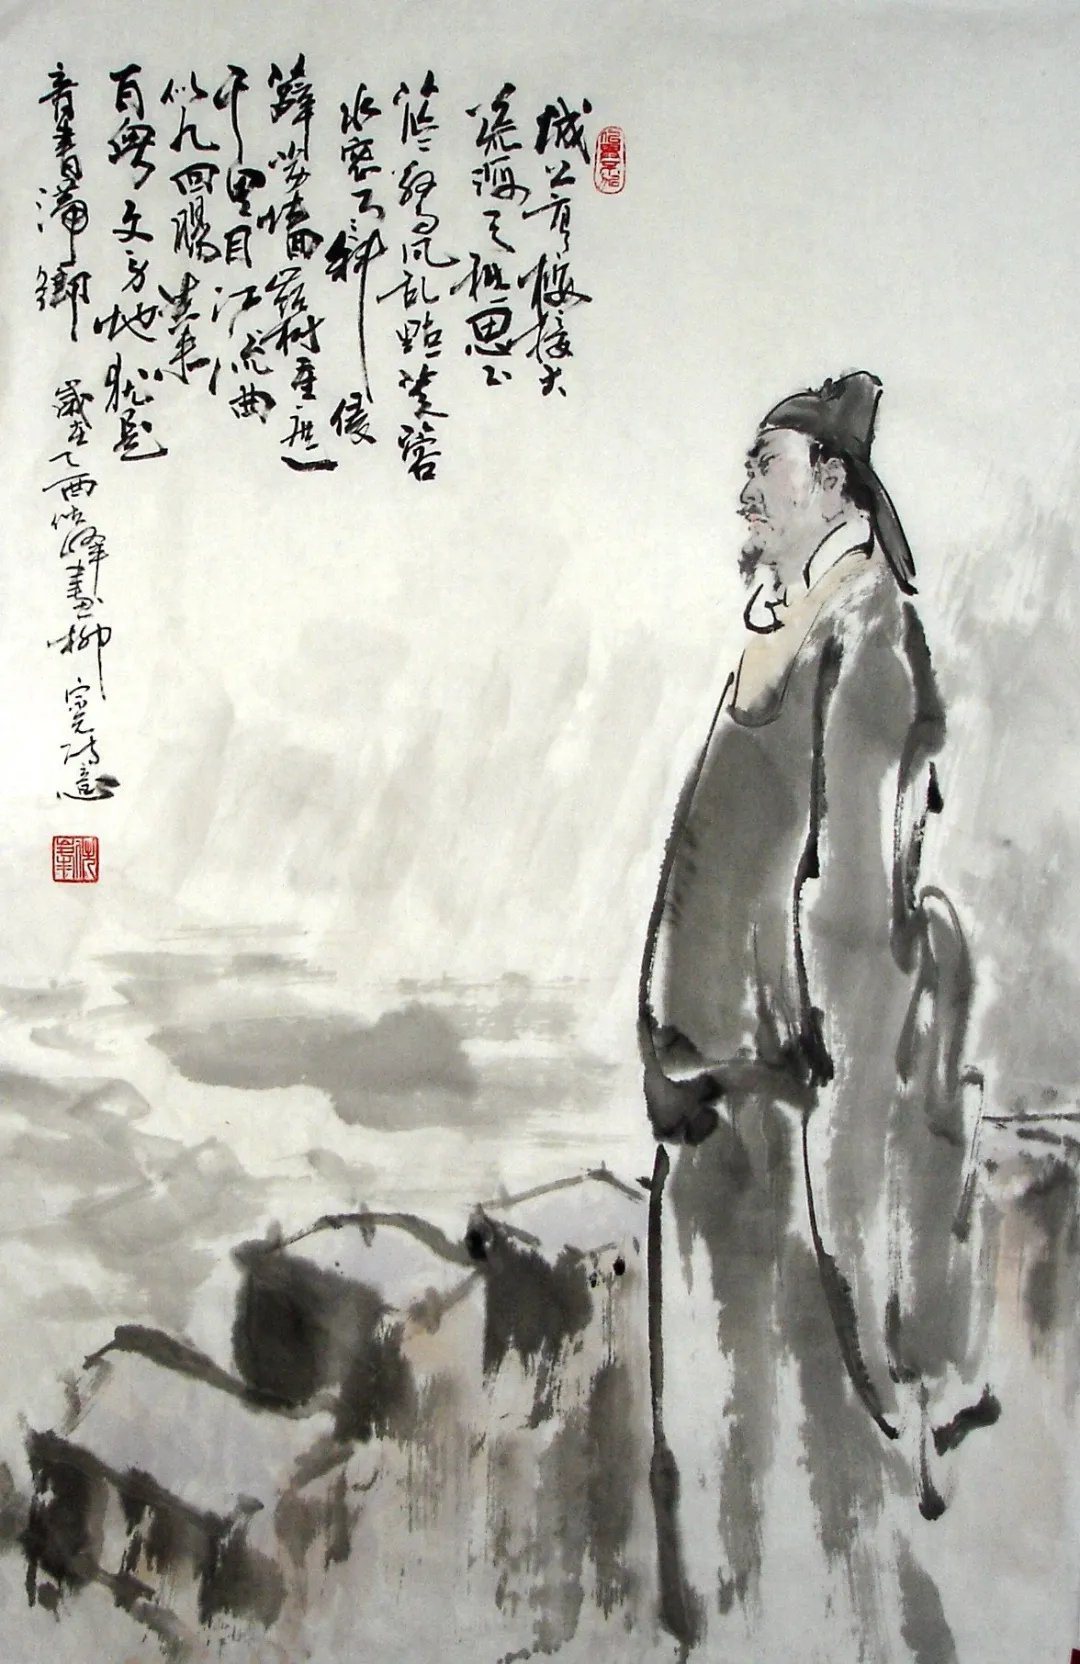 城上高樓接大
荒海天愁思正
茫茫驚風乱飐芙蓉
水密雨斜侵
薜荔墙嶺树重遮
千里目江流曲
似九回腸共来
百粤文身地犹是
音書滯一鄉
歲在乙酉峰畫柳宗元诗意